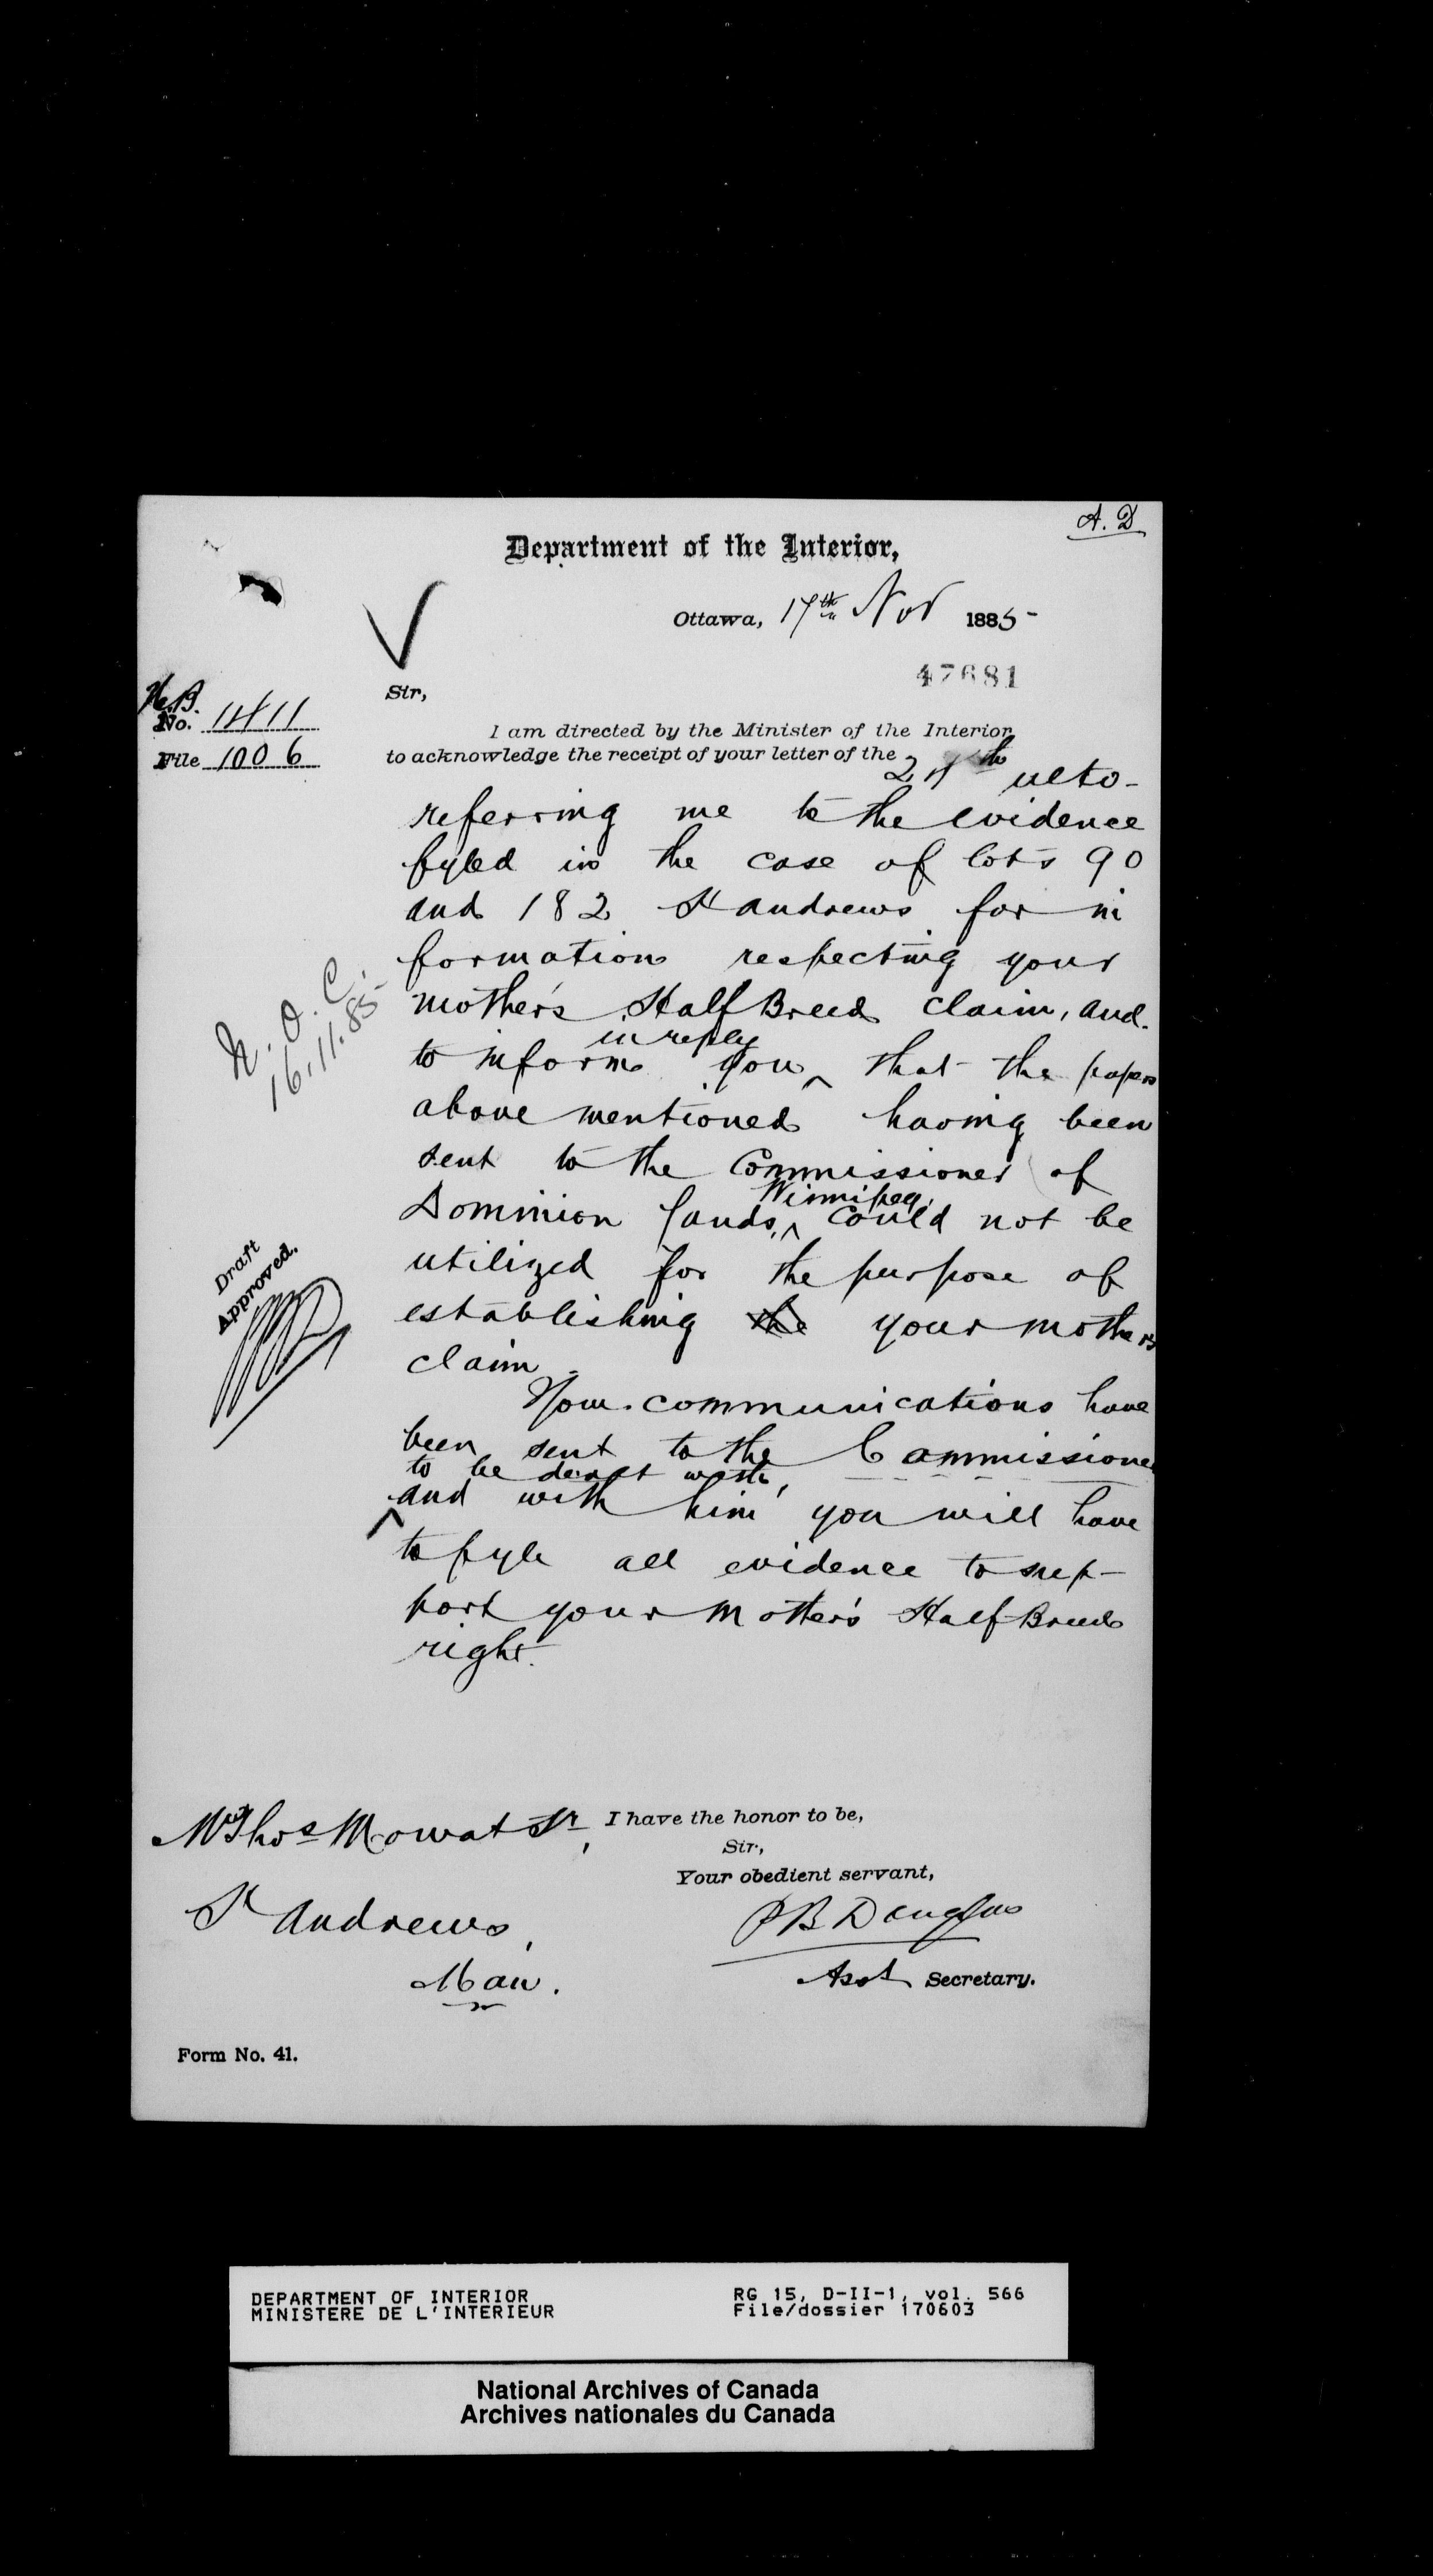 A. D
Department of the Interior,
Ottawa, 17th Nov 1885-
47681
H.B.
No. 1411
File 1006
Sir,
I am directed by the Minister of the Interior
to acknowledge the receipt of your letter of the
ulto-
referring me to the evidence
fyled in the case of lots 90
and 182 St Andrews for in
formation respecting your
mother's Half Breed claim, and
in reply
to inform you ^ that the papers
above mentioned having been
sent to the Commissioner of
Winnipeg,
Dominion Lands, ^ could not be
utilized for the purpose of
establishing the your mothers
claim.
Your communications have
been sent to the Commissioner
to be dealt with,
^ and with him you will have
to fyle all evidence to sup-
port your Mother's Half-Breed
right.
N. O. C.
16.11.85-
Draft
Approved.
Mr Thos Mowat Sr,
St Andrews,
Man.
I have the honor to be,
Sir,
Your obedient servant,
P B Douglas
Asst Secretary.
Form No. 41.
DEPARTMENT OF INTERIOR
MINISTERE DE L'INTERIEUR
RG 15, D-II-1, vol. 566
File/dossier 170603
National Archives of Canada
Archives nationales du Canada